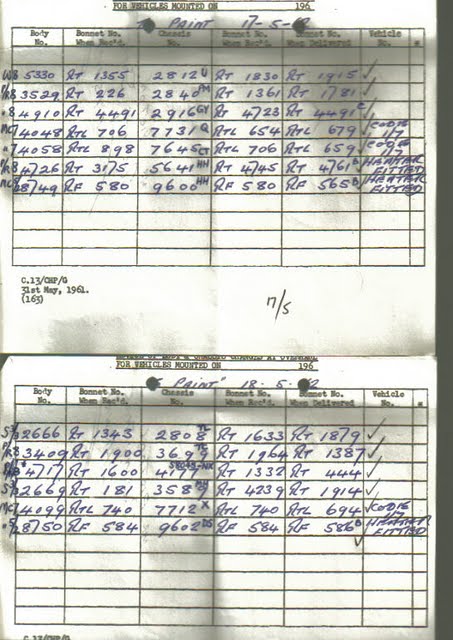 FOR VEHICLES MOUNTED ON 196
PAINT 17-5-62
Body No. Bonnet No. When Rec'd. Chassis No. Bonnet No. When Rec'd. Bonnet No. When Delivered Vehicle No.
5330 RT 1355 2812 U RT 1830 RT 1915 ✓
3529 RT 226 2840 RT 1361 RT 1781 ✓
4910 RT 4491 2916 GY RT 4723 RT 4491 ✓
4048 RTL 706 7731 Q RTL 654 RTL 679 ✓ CODE 1/7
4058 RTL 898 7645 CT RTL 706 RTL 659 ✓ CODE 1/7
4726 RT 3175 5641 HH RT 4745 RT 4761 B HEATER FITTED
28749 RF 580 9600 HH RF 580 RF 565 B HEATER FITTED
C.13/CHP/G
31st May, 1961.
(163)
17/5
FOR VEHICLES MOUNTED ON 196
PAINT" 18.5.62
Body No. Bonnet No. When Rec'd. Chassis No. Bonnet No. When Rec'd. Bonnet No. When Delivered Vehicle No.
2666 RT 1343 2808 TL RT 1633 RT 1879 ✓
3409 RT 1900 RT 1964 RT 1387 ✓
4717 RT 1600 RT 1332 RT 444 ✓
2669 RT 181 3589 RT 4239 RT 1914 ✓
4099 RTL 740 7712 X RTL 740 RTL 694 ✓ CODE 1/7
28750 RF 584 9602 DS RF 584 RF 586 B HEATER FITTED
✓
C.13/CHP/G